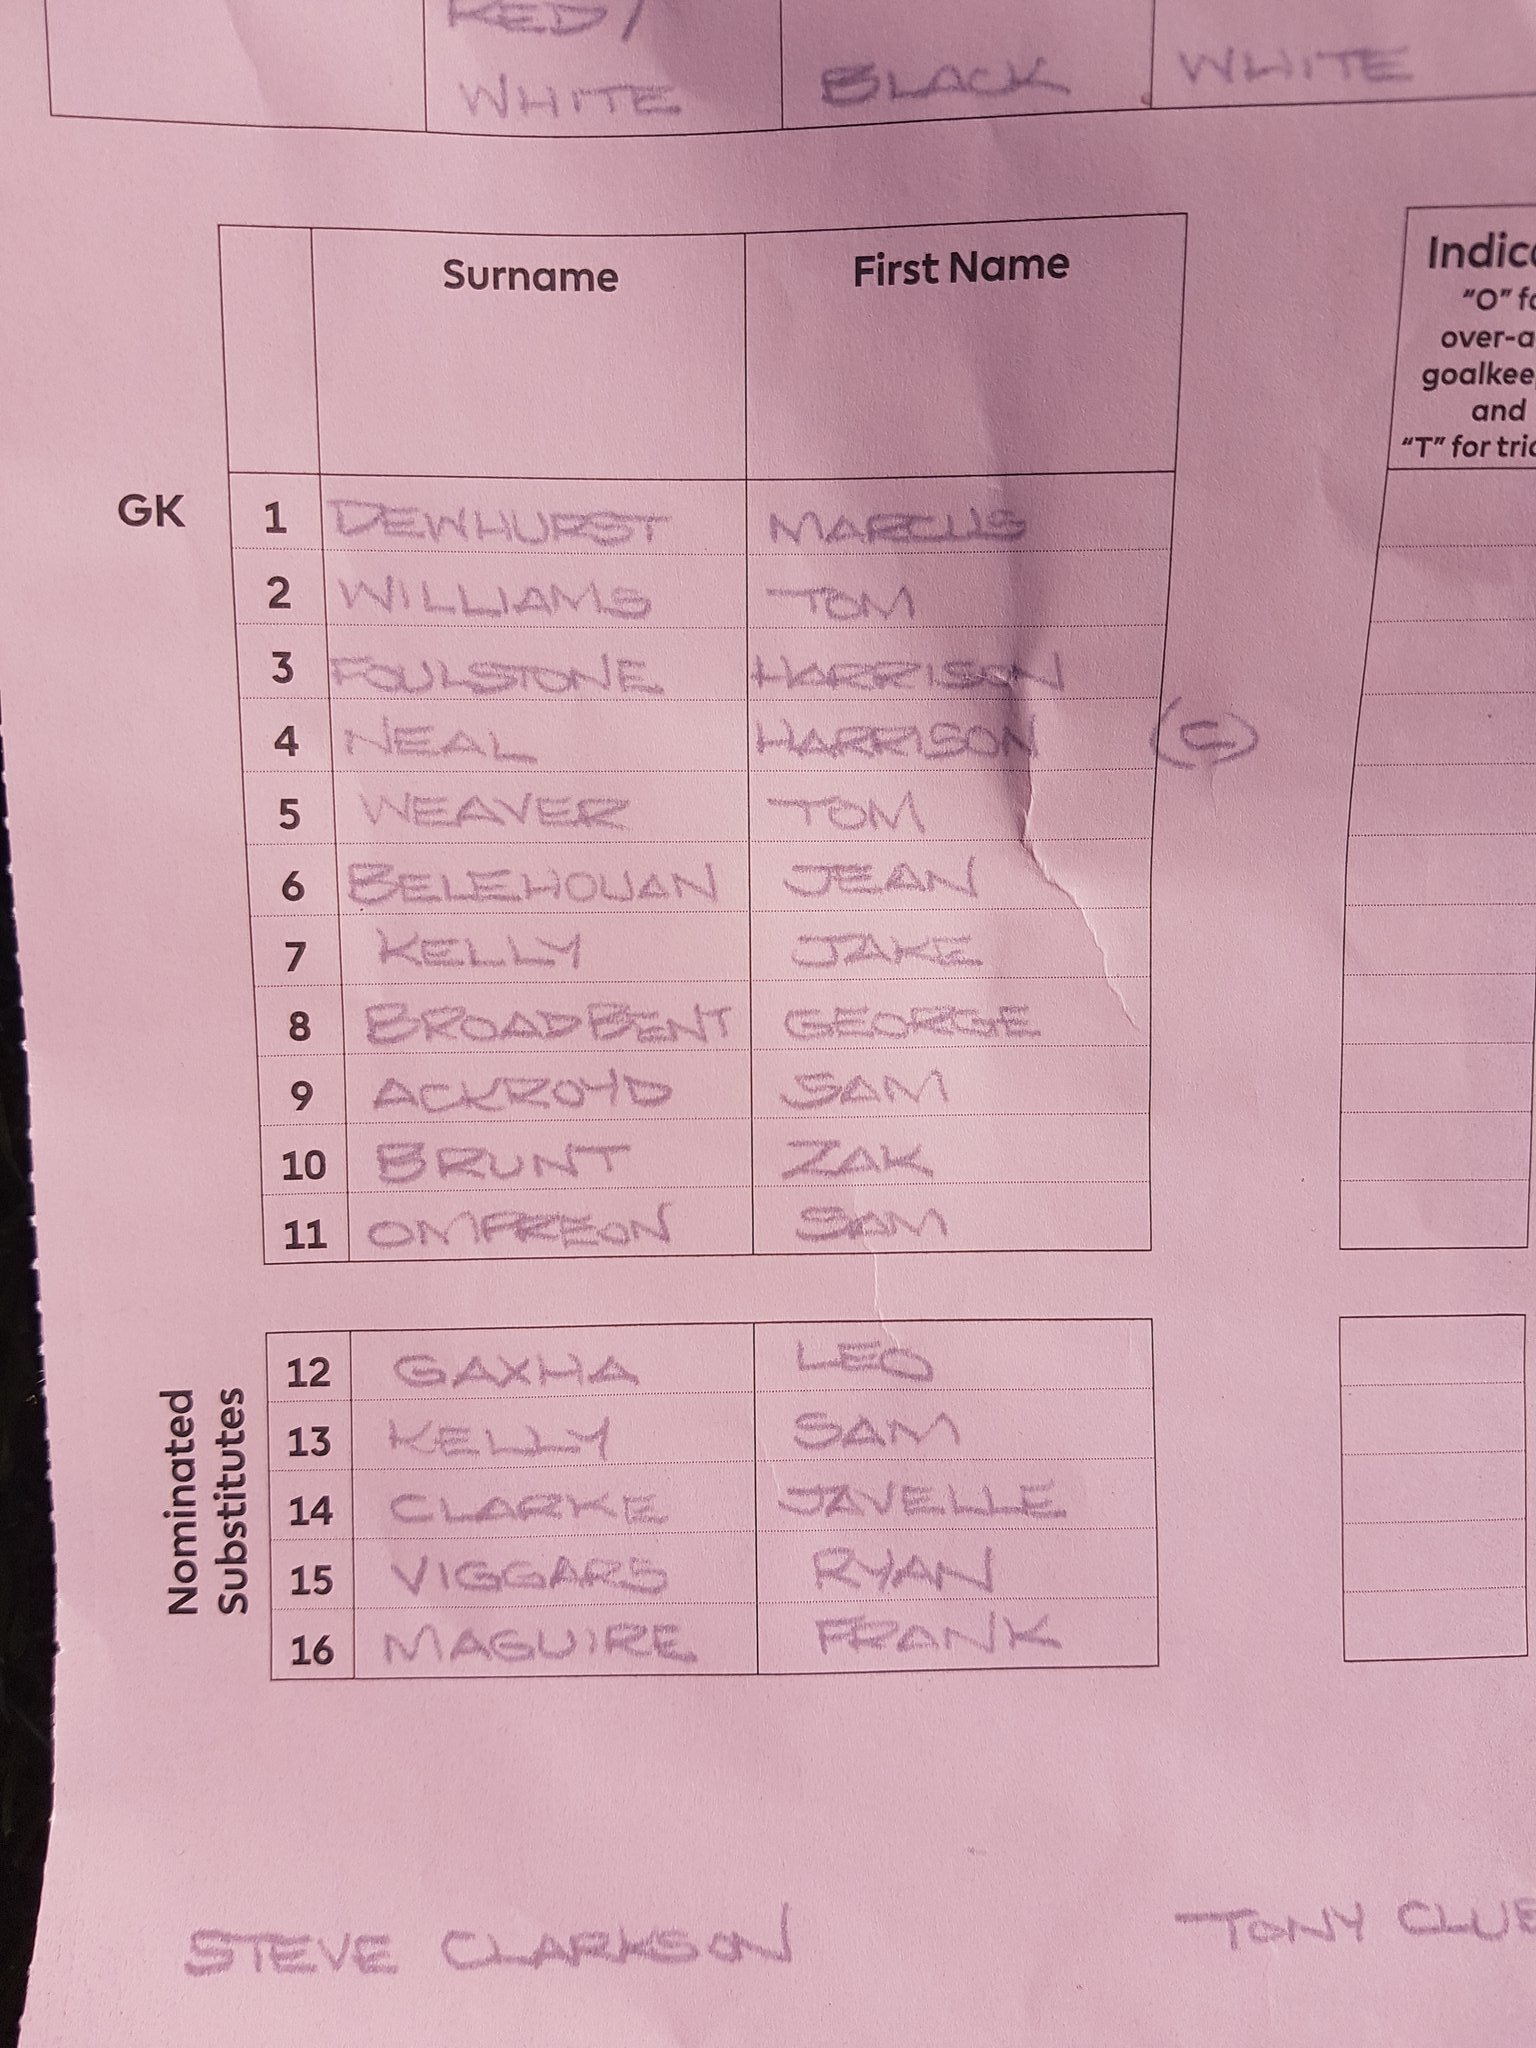 RED/
WHITE BLACK WHITE
Surname First Name
"O"
goalkee
and
"T" for
GK 1 DEWHURST MARCUS
2 WILLIAMS TOM
3 FOULSTONE HARRISON
4 NEAL HARRISON (C)
5 WEAVER TOM
6 BELEHOUAN JEAN
7 KELLY JAKE
8 BROADBENT GEORGE
9 ACKROYD SAM
10 BRUNT ZAK
11 OMFREON SAM
Nominated
Substitutes
12 GAXHA LEO
13 KELLY SAM
14 CLARKE JAVELLE
15 VIGGARS RYAN
16 MAGUIRE FRANK
STEVE CLARKSON TONY CLUE